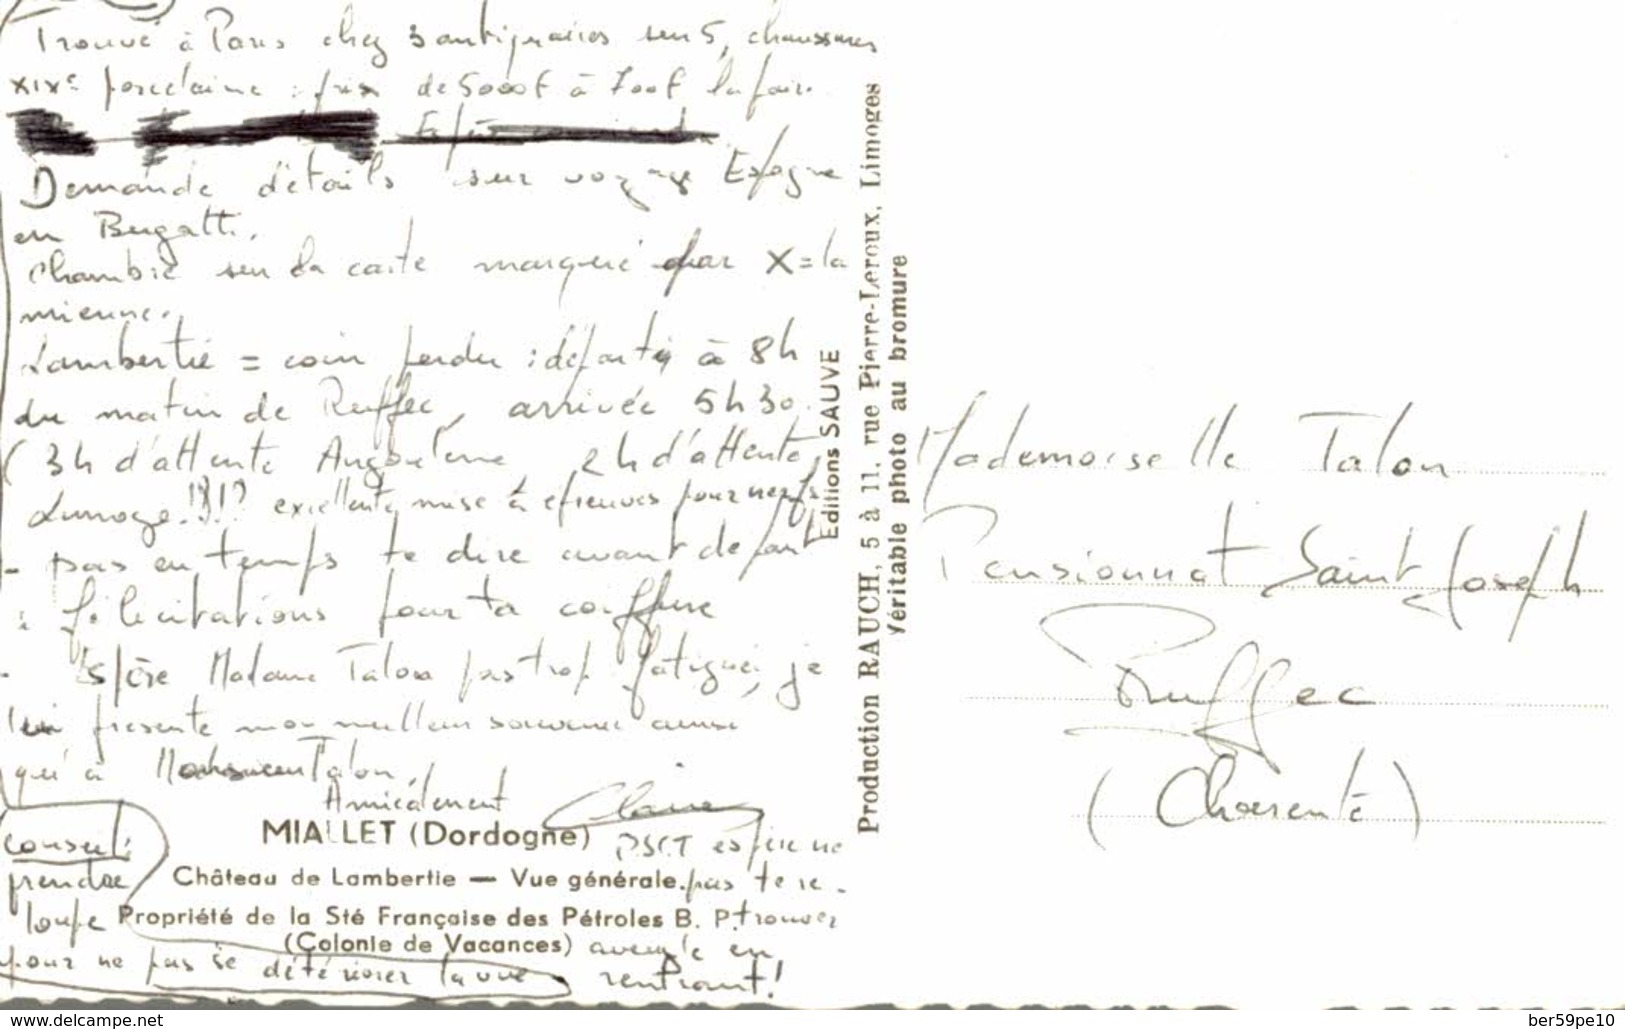 Trouvé à Paris chez 3 antiquaires sur 5, chaussures
XIXe porcelaine : prix de 5000f à 700f la paire.
Demande détails sur voyage Espagne
en Bugatti.
Chambre sur la carte marqué par X = la
mienne.
Lambertie = coin perdu : départ à 8h
du matin de Ruffec, arrivée 5h30.
(3h d'attente Angoulême 2h d'attente
Limoges !!?!? excellente mise à épreuves pour nerfs
- pas eu temps te dire avant départ
: félicitations pour ta coiffure
- Espère Madame Talon pas trop fatiguée, je
lui présente mon meilleur souvenir ainsi
qu'à Monsieur Talon,
Amicalement Claire
MIALLET (Dordogne)
Château de Lambertie — Vue générale.
Propriété de la Sté Française des Pétroles B. P.
(Colonie de Vacances)
P.SCT espère ne
pas te re-
trouver
aveugle en
rentrant !
Conseil :
prendre
loupe
pour ne pas se détériorer la vue
Editions SAUVE
Production RAUCH, 5 à 11, rue Pierre-Leroux, Limoges
Véritable photo au bromure
Mademoiselle Talon
Pensionnat Saint Joseph
Ruffec
(Charente)
www.delcampe.net
ber59pe10